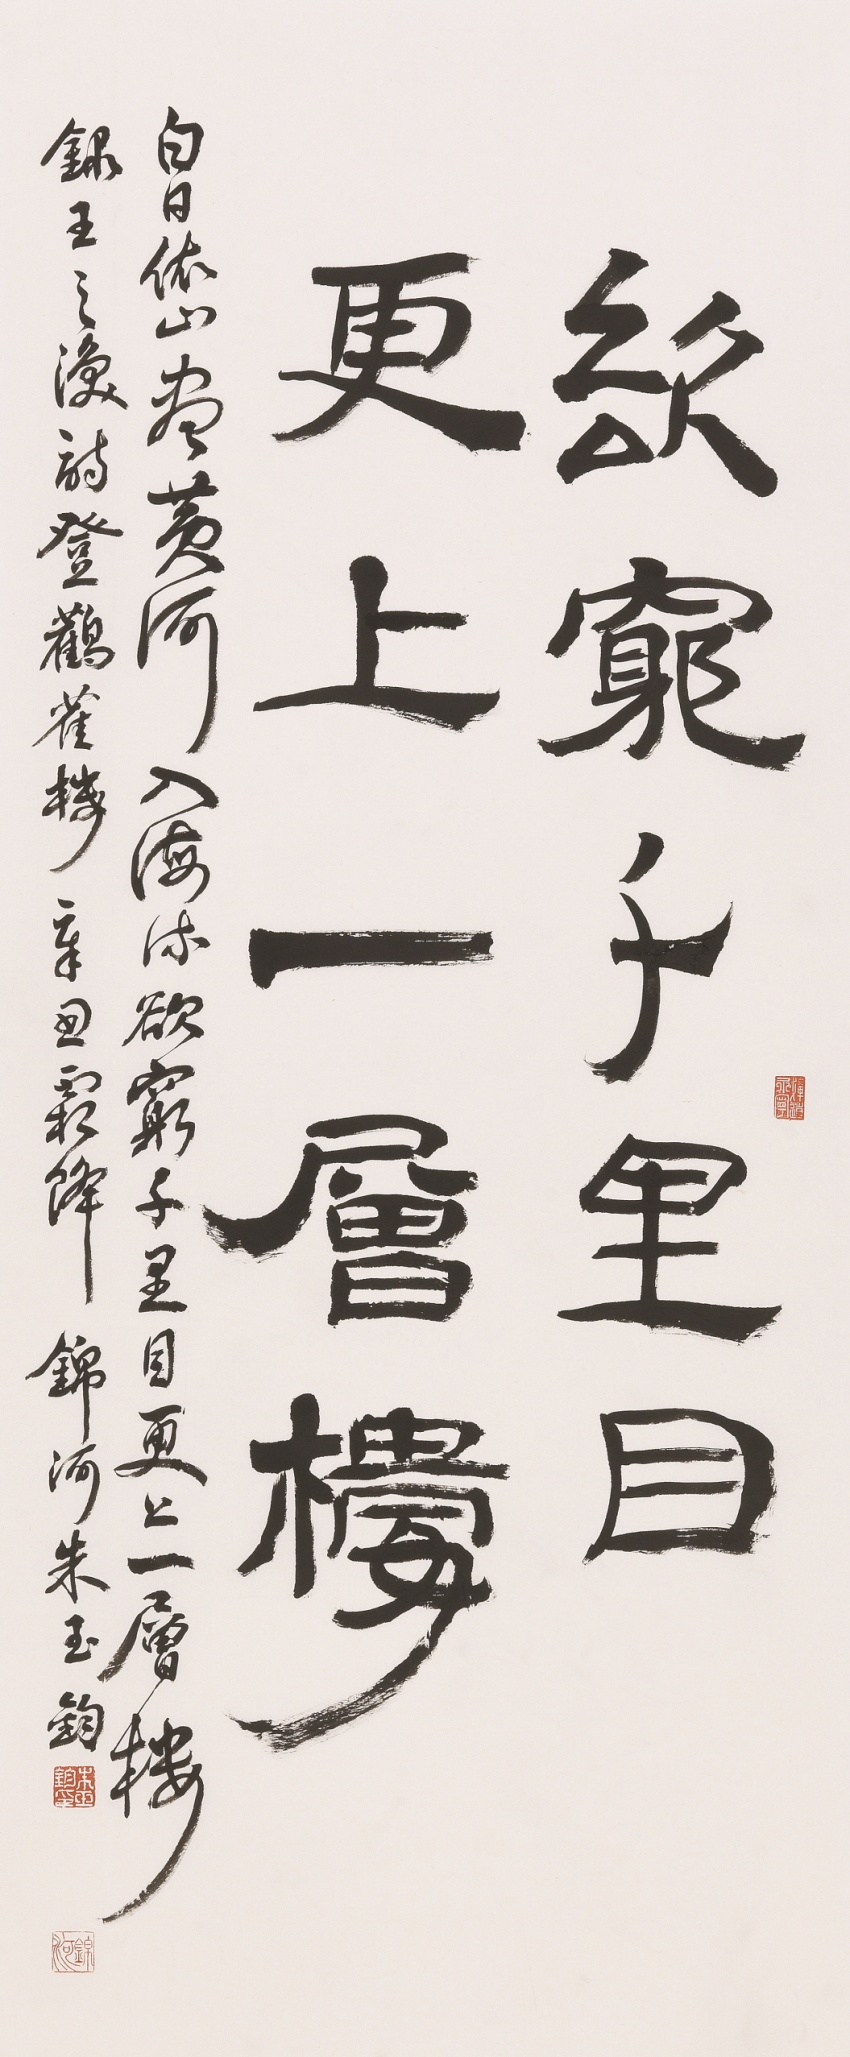 欲窮千里目
更上一層樓
白日依山盡黄河入海流欲窮千里目更上一層樓
録王之渙詩登鸛雀樓 辛丑霜降 錦河朱玉鈞
朱玉鈞印
錦河